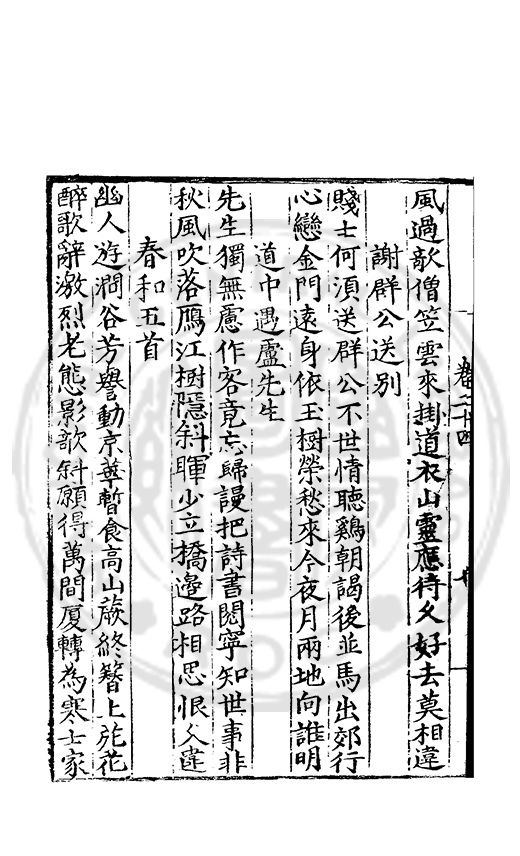 風過欹僧笠雲來掛道衣山靈應待久好去莫相違
謝群公送別
賤士何湏送群公不世情聽鷄朝謁後並馬出郊行
心戀金門遠身依玉樹榮愁來今夜月兩地向誰明
道中遇盧先生
先生獨無慮作客竟忘歸謾把詩書閱寧知世事非
秋風吹落鴈江樹隱斜暉少立橋邊路相思恨久違
春和五首
幽人遊澗谷芳譽動京華暫食高山蕨終簪上苑花
醉歌辭激烈老態影欹斜願得萬間厦轉為寒士家
卷二十四